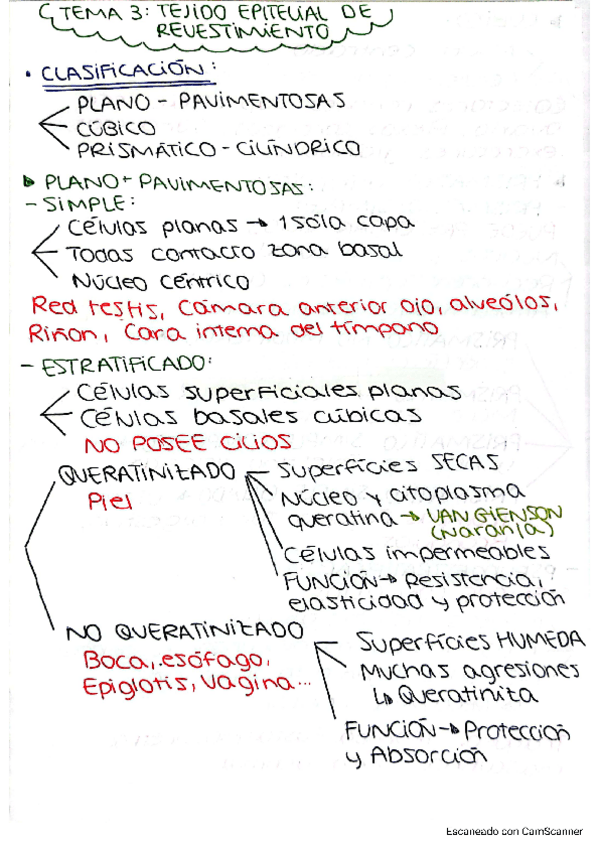 TEMA 3: TEJIDO EPITELIAL DE
REVESTIMIENTO
• CLASIFICACIÓN:
PLANO - PAVIMENTOSAS
CÚBICO
PRISMÁTICO - CILÍNDRICO
PLANO + PAVIMENTOSAS:
- SIMPLE:
Células planas → 1 sola capa
Todas contacto zona basal
Núcleo céntrico
Red testis, Cámara anterior ojo, alveolos,
Riñon, Cara interna del tímpano
- ESTRATIFICADO:
Células superficiales planas
Células basales cúbicas
NO POSEE CILIOS
QUERATINIZADO
Piel
Superfícies SECAS
Núcleo y citoplasma
queratina → VAN GIENSON
(Naranja)
Células impermeables
FUNCIÓN → Resistencia,
elasticidad y protección
NO QUERATINIZADO
Boca, esófago,
Epiglotis, Vagina...
Superfícies HUMEDA
Muchas agresiones
↳ Queratinita
FUNCIÓN → Protección
y Absorción
Escaneado con CamScanner